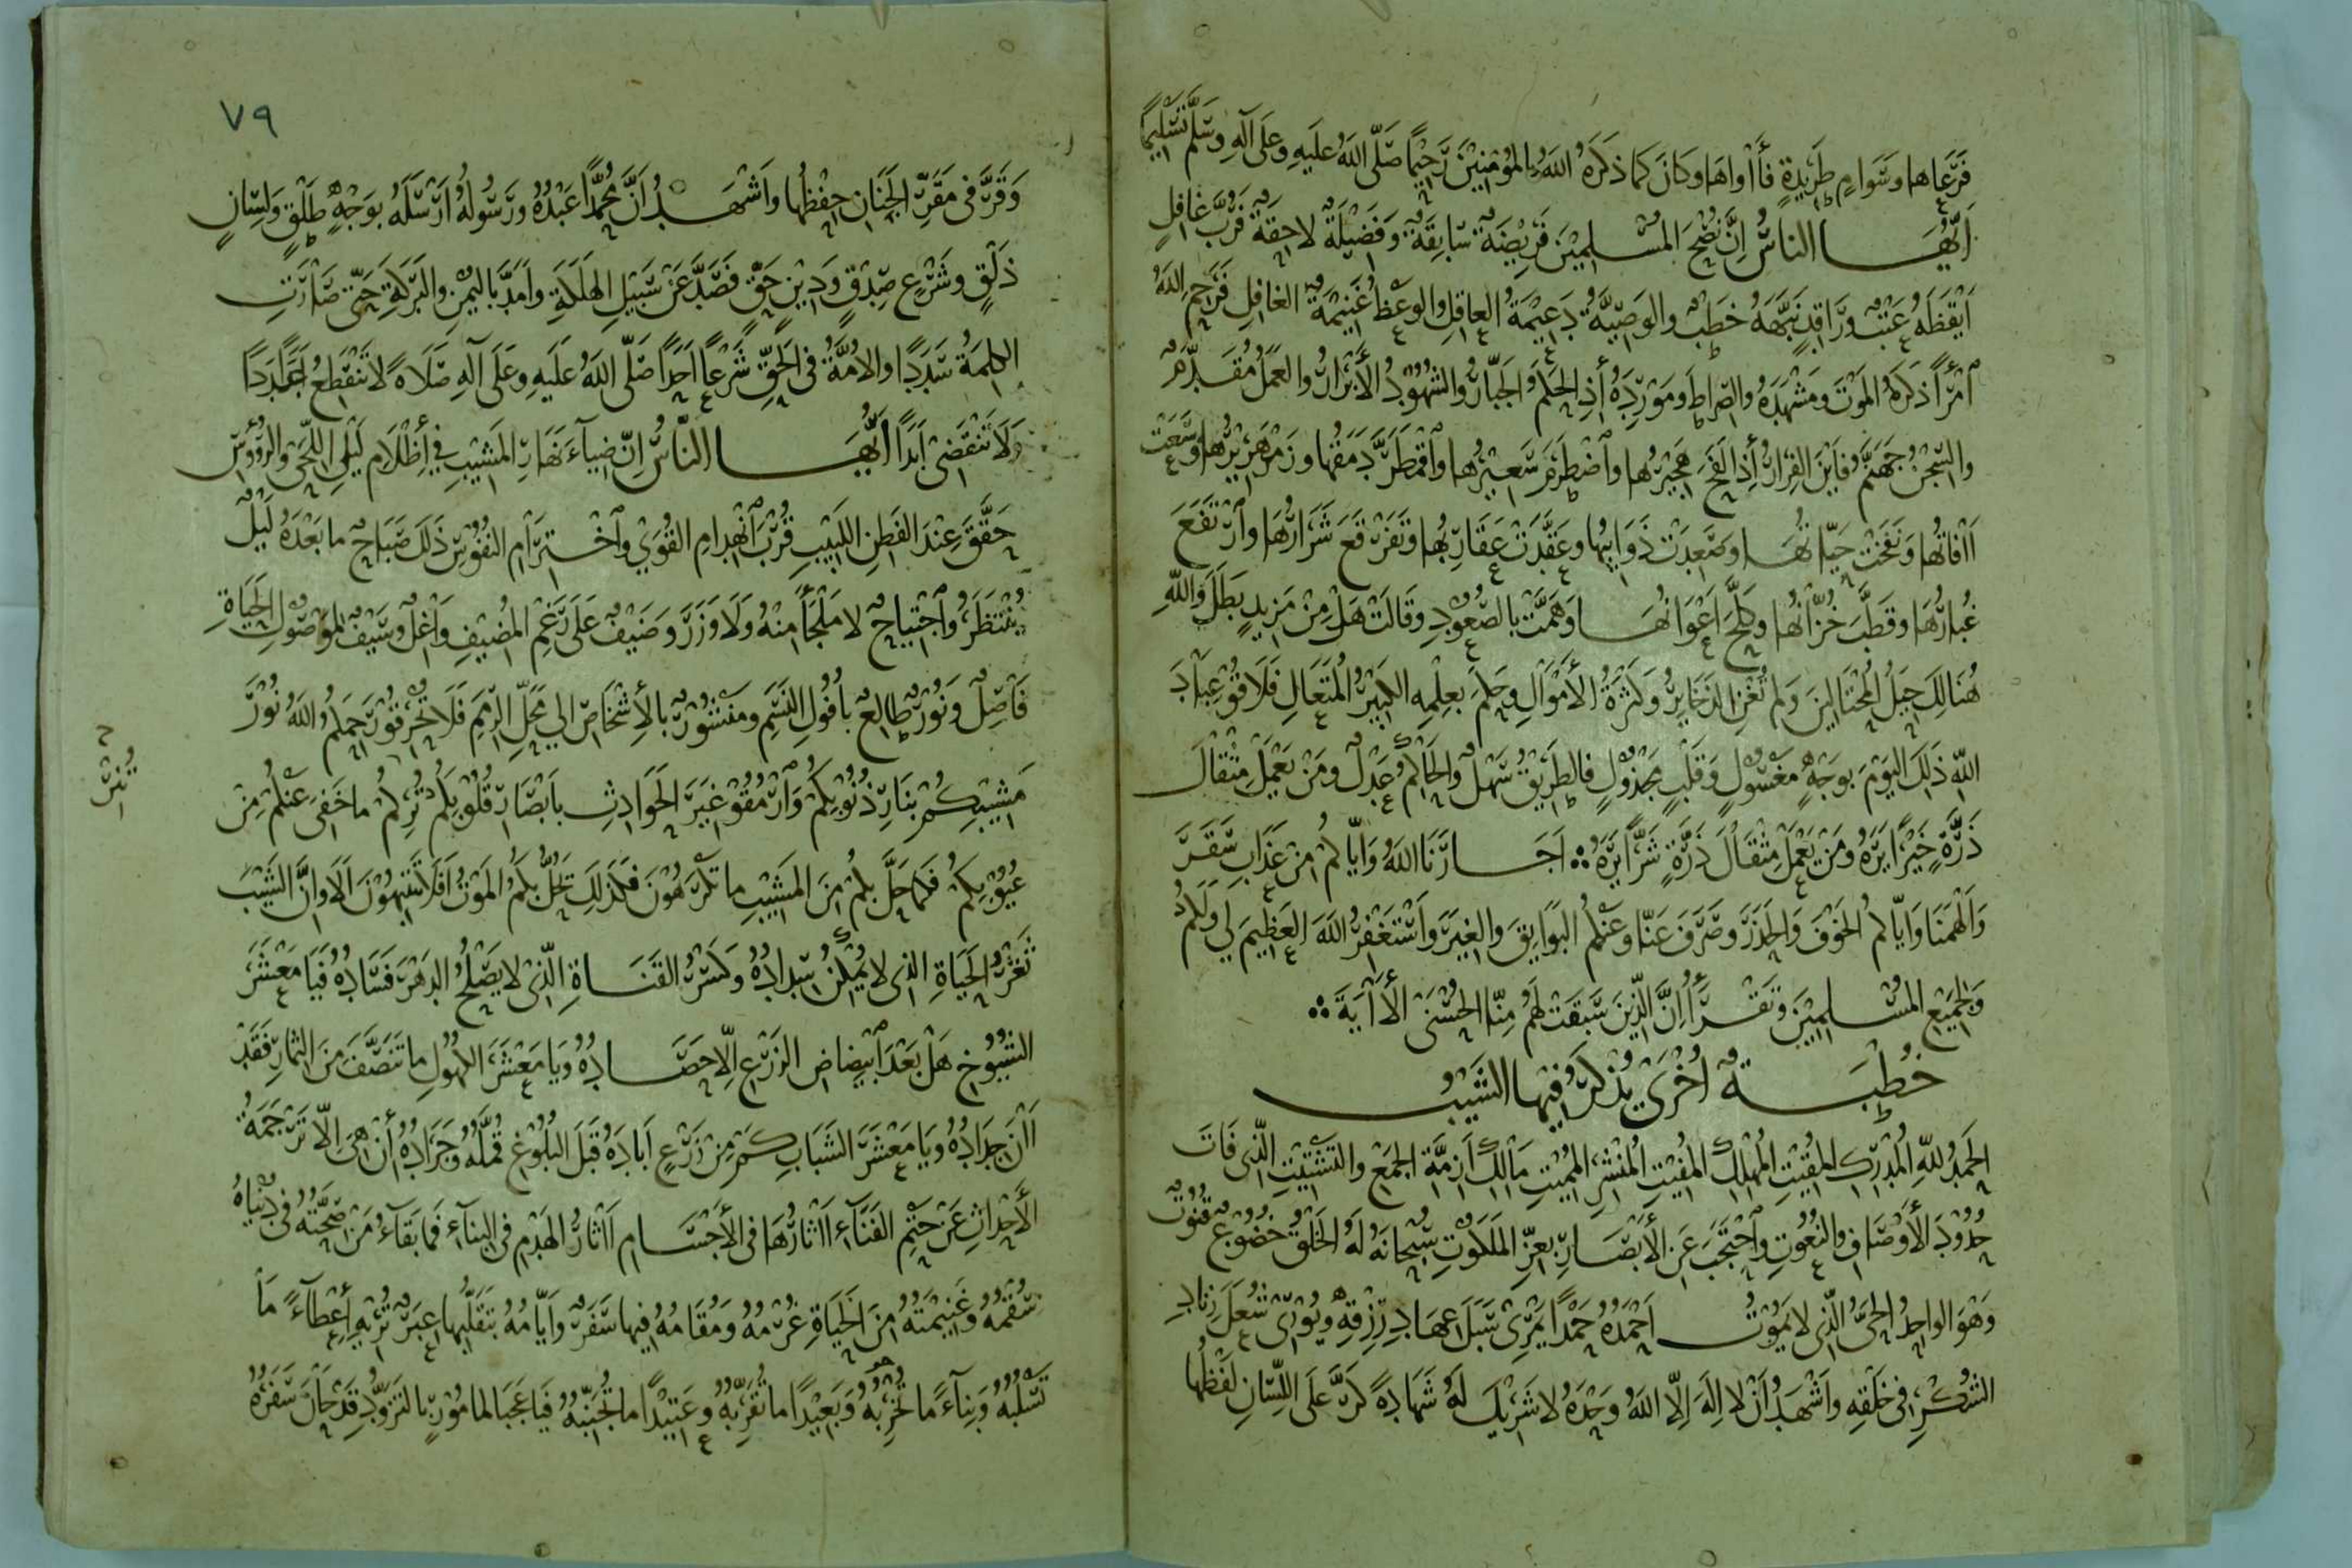 فَرَعَاها وسَوَامٍ طَرِيدَةٍ فأاواها وكانَ كما ذكَرَهُ اللهُ بالمؤمنين رَحِيمًا صَلّى اللهُ عليهِ وعَلى آلِهِ وسلَّم تَسْلِيمًا
أيُّهَا الناسُ إنَّ نُصْحَ المسْلِمِيْنَ فَرِيْضَةٌ سَابِقَةٌ وفَضِيْلَةٌ لاحِقَةٌ فَرُبَّ غَافِلٍ
أيْقَظَهُ عَتْبٌ ورَاقِدٍ نَبَّهَهُ خَطْبٌ والوَصِيَّةُ دَعِيْمَةُ العاقِلِ والوعْظُ غَنِيمَةُ الغافِلِ فَرَحِمَ اللهُ
ٱمْرَأً ذكَرَ المَوْتَ ومَشْهَدَهُ والصِّراطَ ومَوْرِدَهُ إذِ الحَكَمُ الجَبَّارُ والشُهُوْدُ الأبْرَارُ والعَمَلُ مُقَدَّمٌ
والسِّجْنُ جَهَنَّمُ فأيْنَ الفِرَارُ إذا لَفَحَ هَجِيْرُها وٱضْطَرَمَ سَعِيْرُها وٱقْمَطَرَّ دَمَقُها وزَمْهَرِيْرُها وسَعَتْ
اٰفاتُها ونَفَخَتْ حيّاتُهَا وصَعِدَتْ ذَوَايِبُها وعَقَّدَتْ عَقَارِبُها وتَفَرْقَعَ شَرَارُهَا وٱرْتَفَعَ
غُبَارُهَا وقَطَّبَ خُزَّانُها وكَلَحَ أعْوَانُهَا وهَمَّتْ بالصُعُوْدِ وقَالَتْ هَلْ مِنْ مَزِيدٍ بَطَلَ واللهِ
هُنَالِكَ حِيَلُ المُحْتَالِيْنَ ولم تُغْنِ الذَخَايِرُ وكَثْرَةُ الأمْوَالِ وحَكَمَ بعِلْمِهِ الكَبِيْرُ المُتَعَالِ فَلَاقُوْا عِبَادَ
اللهِ ذَلِكَ اليَوْمَ بوَجْهٍ مغْسُوْلٍ وقَلْبٍ مَجْذُوْلٍ فالطَرِيْقُ سَهْلٌ والحَاكِمُ عَدْلٌ ومَنْ يَعْمَلْ مِثْقَالَ
ذَرَّةٍ خَيْرًا يَرَهُ ومَنْ يَعْمَلْ مِثْقَالَ ذَرَّةٍ شَرًّا يَرَهُ ∴ أجَارَنَا اللهُ وَايّاكُمْ مِنْ عَذَابِ سَقَرَ
وألْهَمَنَا وايّاكُمُ الخَوْفَ والحَذَرَ وصَرَفَ عَنّا وعَنْكُمُ البَوَايِقَ والغِيَرَ وأسْتَغْفِرُ اللهَ العَظِيمَ لي ولَكُمْ
ولجَمِيْعِ المُسْلِمِيْنَ وتَقْرَأُ إنَّ الذِّينَ سَبَقَتْ لَهُمْ مِنّا الحُسْنَى الأٰيَةَ ∴
خُطْبَةٌ أُخْرَى يُذْكَرُ فِيْهَا الشَيْبُ
الحَمْدُ للهِ المُدْرِكِ المُقِيْتِ المُهْلِكِ المُفِيْتِ المُنْشِرِ المُمِيْتِ مَالِكِ أزِمَّةِ الجَمْعِ والتَشْتِيْتِ الذِّي فَاتَ
حُدُوْدَ الأوْصَافِ والنُعُوتِ واحْتَجَبَ عَنِ الأبْصَارِ بعِزِّ المَلَكُوْتِ سُبْحَانَهُ لَهُ الخَلْقُ خُضُوْعٌ قُنُوْتٌ
وَهُوَ الواحِدُ الحَيُّ الذّي لا يَمُوْتُ أحْمَدُهُ حَمْدًا يَمْرِي سَبَلَ عِهَادِ رِزْقِهِ ويُوْرِي شُعَلَ زِنَادِ
الشُكْرِ في خَلْقِهِ وأشْهَدُ أنْ لا إلَهَ إلّا اللهُ وحْدَهُ لا شَرِيْكَ لَهُ شَهَادةً كَرَّ على اللِّسَانِ لَفْظُها
٧٩
وَقَرَّ في مَقَرِّ الجَنَانِ حِفْظُها وأشْهَدُ أنَّ مُحمَّدًا عَبْدُهُ ورَسُولُهُ أرْسَلَهُ بوَجْهٍ طَلْقٍ ولِسَانٍ
ذَلْقٍ وشَرْعِ صِدْقٍ ودِيْنِ حَقٍّ فَصَدَّ عَنْ سَبِيلِ الهَلَكَةِ وأمَدَّ باليُمْنِ والبَرَكَةِ حَتّى صَارَتِ
الكلِمَةُ سَدَدًا والأُمَّةُ في الحَقِّ شَرْعًا أحَدًا صَلّى اللهُ عَلَيهِ وعَلى آلِهِ صَلَاةً لا تَنْقَطِعُ عَدَدًا
ولا تَنْقَضي أبَدًا أيُّهَا النَّاسُ إنّ ضِيآءَ نَهَارِ المَشِيْبِ في إظْلَامِ لَيْلِ اللِّحَى والرُؤُسِ
حَقَّقَ عِنْدَ الفَطِنِ اللَبِيْبِ قُرْبَ ٱنْهِدامِ القُوَي وٱخْتِرَامِ النُفُوْسِ ذَلكَ صَبَاحٌ ما بَعْدَهُ لَيْلٌ
يُنْتَظَرُ وٱجْتِيَاحٌ لا مَلْجَأَ مِنْهُ ولَا وَزَرَ وضَيْفٌ عَلَى رَغْمِ المُضِيْفِ وَاغِلٌ وسَيْفٌ لموْصُوْلِ الحَيَاةِ
فَاصِلٌ ونُوْرٌ طالِعٌ بأُفُولِ النَسَمِ ومَنْشُوْرٌ بالإشْخَاصِ الي مَحَلِّ الرِمَمِ فَلَا تُحْرِقُوْا رَحِمَكُمُ اللهُ نُوْرَ
مَشِيْبِكُمْ بنَارِ ذُنُوْبِكُمْ وٱرْمُقُوْا غِيَرَ الحَوَادِثِ بأبْصَارِ قُلُوْبِكُمْ تُرِكُمْ ما خَفِيَ عَنْكُمْ مِنْ
عُيُوْبِكُمْ فَكَما حَلَّ بكُمْ مِنَ المَشِيْبِ ما تَكْرَهُوْنَ فكَذَلِكَ يَحُلُّ بكُمُ المَوْتُ أفَلَا تَنْتَهُوْنَ ألا وانَّ الشَيْبَ
ثَغْرُ الحَيَاةِ الذي لا يُمْكِنُ سِدَادُهُ وكَسْرُ القَنَاةِ الذّي لا يَصْلُحُ الدَهْرَ فَسَادُهُ فَيَا مَعْشَرَ
الشُيُوْخِ هَلْ بَعْدَ ٱبْيِضَاضِ الزَرْعِ إلّا حَصَادُهُ ويَا مَعْشَرَ الكُهُولِ ما تَنَصَّفَ مِنَ الثِمَارِ فَقَدْ
اٰنَ جَدَادُهُ ويَا مَعْشَرَ الشَبَابِ كَمْ مِنْ زَرْعٍ أبَادَهُ قَبْلَ البُلُوْغِ قُمَّلُهُ وجَرَادُهُ إنْ هِيَ إلّا تَرْجَمَةُ
الأحْدَاثِ عَنْ حَتْمِ الفَنَآءِ اٰثَارُهَا في الأجْسَامِ اٰثَارُ الهَدْمِ في البِنَآءِ فَما بَقَآءُ مَنْ صِحَّتُهُ في دُنْيَاهُ
سُقْمُهُ وغَنِيْمَتُهُ مِنَ الحَيَاةِ غُرْمُهُ ومُقَامُهُ فِيها سَفَرٌ وأيّامُهُ بتَقَلُّبِها عِبَرٌ تُرِيْهِ إعْطَآءً مَا
تَسْلُبُهُ وبِنَآءً ما تُخَرِّبُهُ وبَعِيْدًا ما تُقَرِّبُهُ وعَتِيْدًا ما تُجَنِّبُهُ فَيَا عَجَبًا لمَامُوْرٍ بالتَزَوُّدِ قَدْ حَانَ سَفَرُهُ